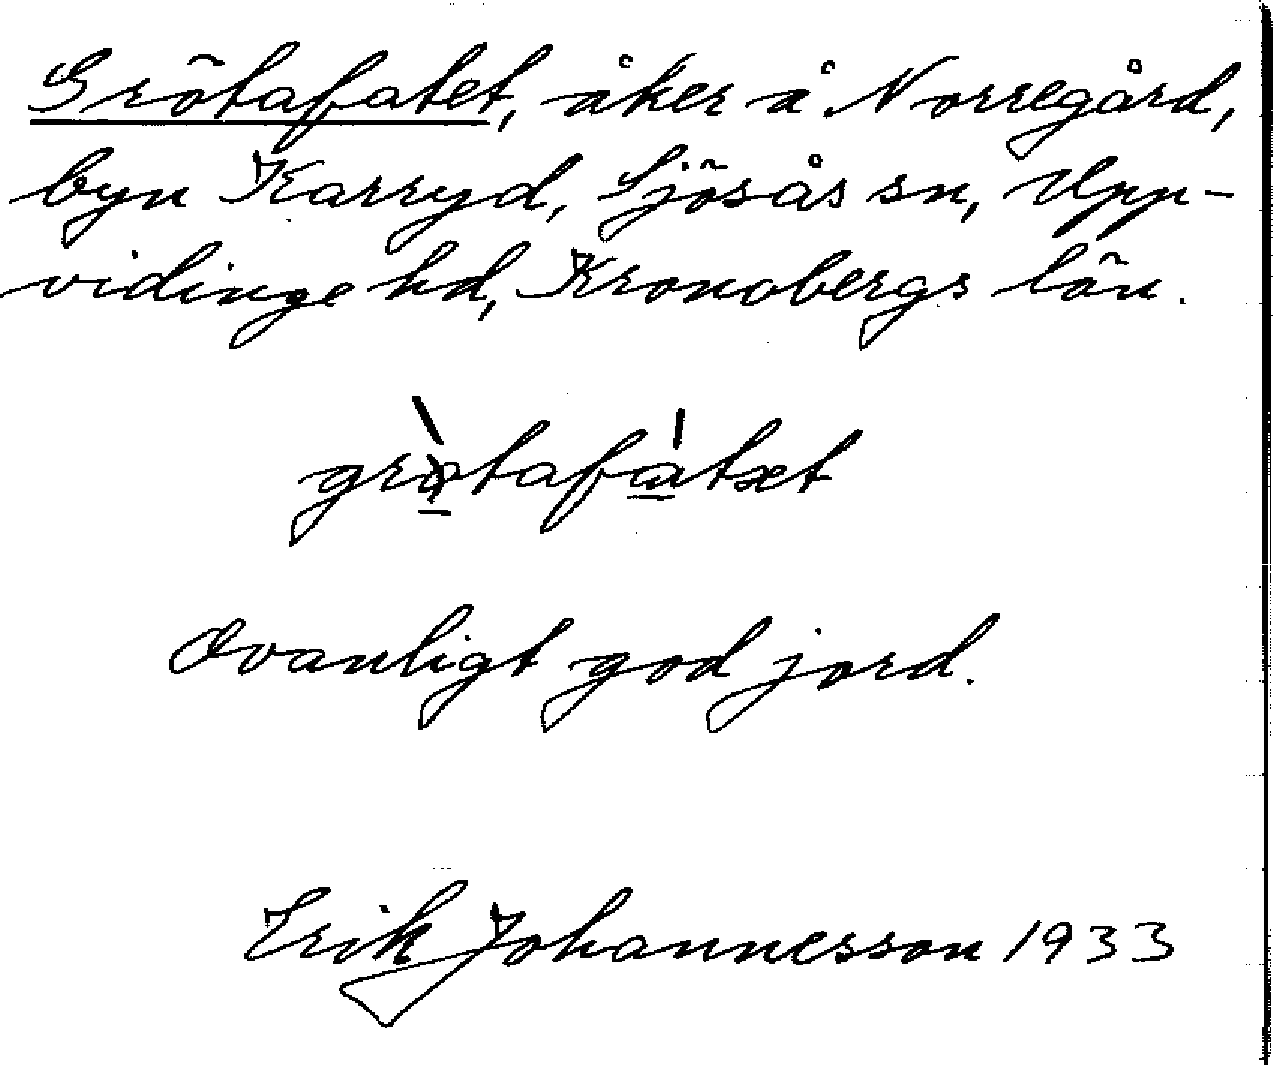 Grötafatet, åker å Norregård,
byn Karryd, Sjösås sn, Upp-
vidinge hd, Kronobergs län.
grø̀tafátæt
Ovanligt god jord.
Erik Johannesson 1933